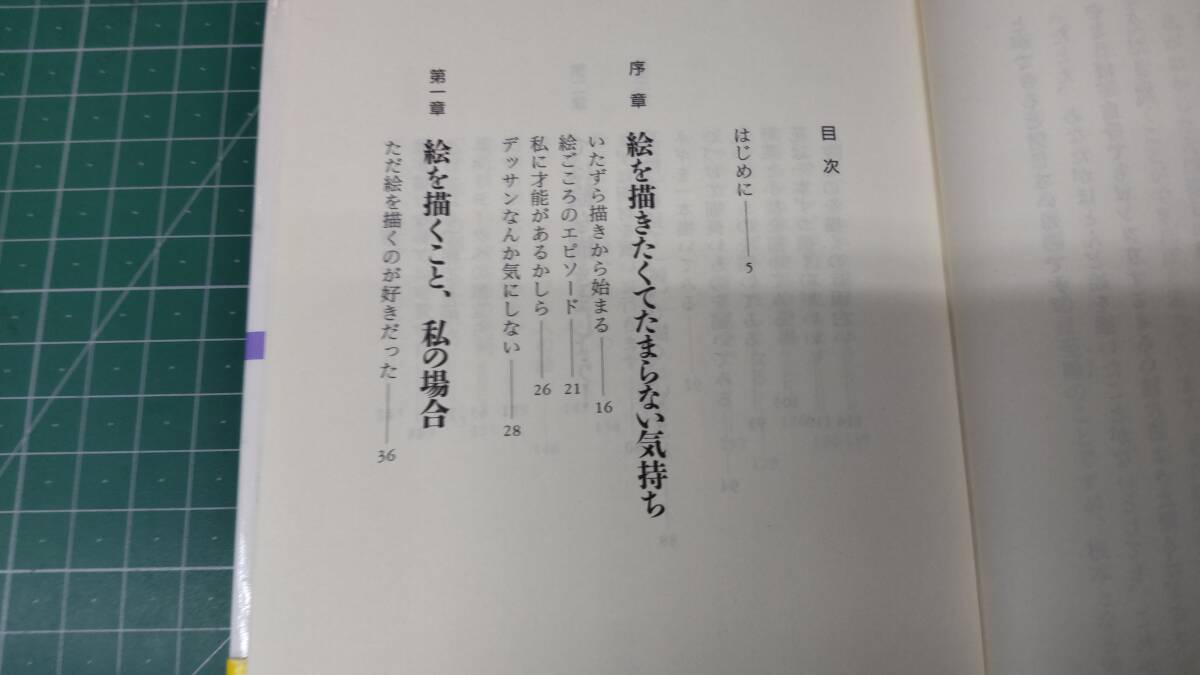 目次
はじめに――5
序章 絵を描きたくてたまらない気持ち
いたずら描きから始まる――16
絵ごころのエピソード――21
私に才能があるかしら――26
デッサンなんか気にしない――28
第一章 絵を描くこと、私の場合
ただ絵を描くのが好きだった――36